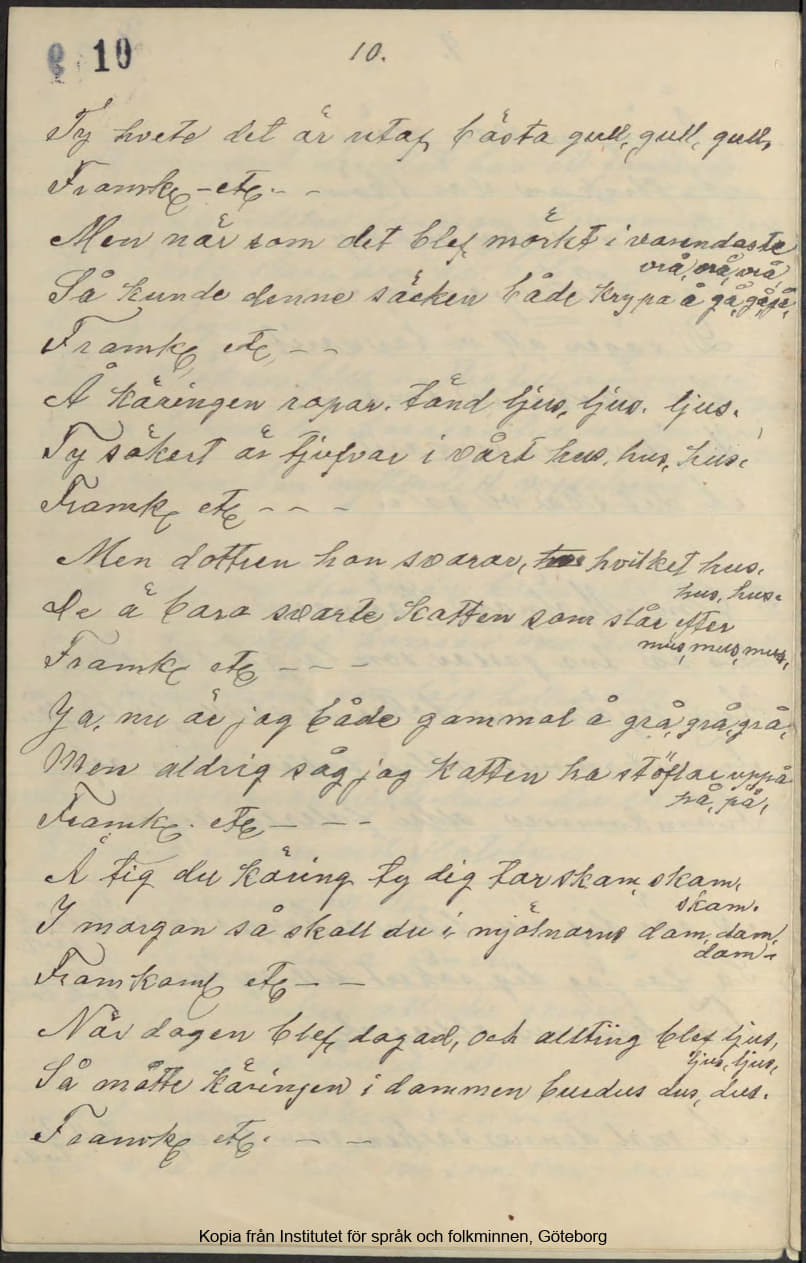 10 10.
Ty hvete det är utaf bästa gull, gull, gull,
Framk, - etc. - -
Men när som det blef mörkt i varendaste
vrå, vrå, vrå,
Så kunde denne säcken både krypa å gå, gå, gå,
Framk, etc, - -
Å käringen ropar. tänd ljus, ljus. ljus.
Ty säkert är tjufvar i vårt hus, hus, hus.
Framk, etc - - -
Men dottren hon svarar, hvilket hus,
hus, hus.
De ä bara svarte katten som slår efter
mus, mus, mus,
Framk, etc - - -
Ja, nu är jag både gammal å grå, grå, grå,
Men aldrig såg jag katten ha stöflar uppå
på, på,
Framk,. etc - - -
Å tig du käring ty dig tar skam, skam,
skam.
I morgon så skall du i mjölnarns dam, dam,
dam -
Framkom, etc - -
När dagen blef dagad, och allting blef ljus,
ljus, ljus,
Så måtte käringen i dammen burdus dus, dus.
Framk, etc. - -
Kopia från Institutet för språk och folkminnen, Göteborg